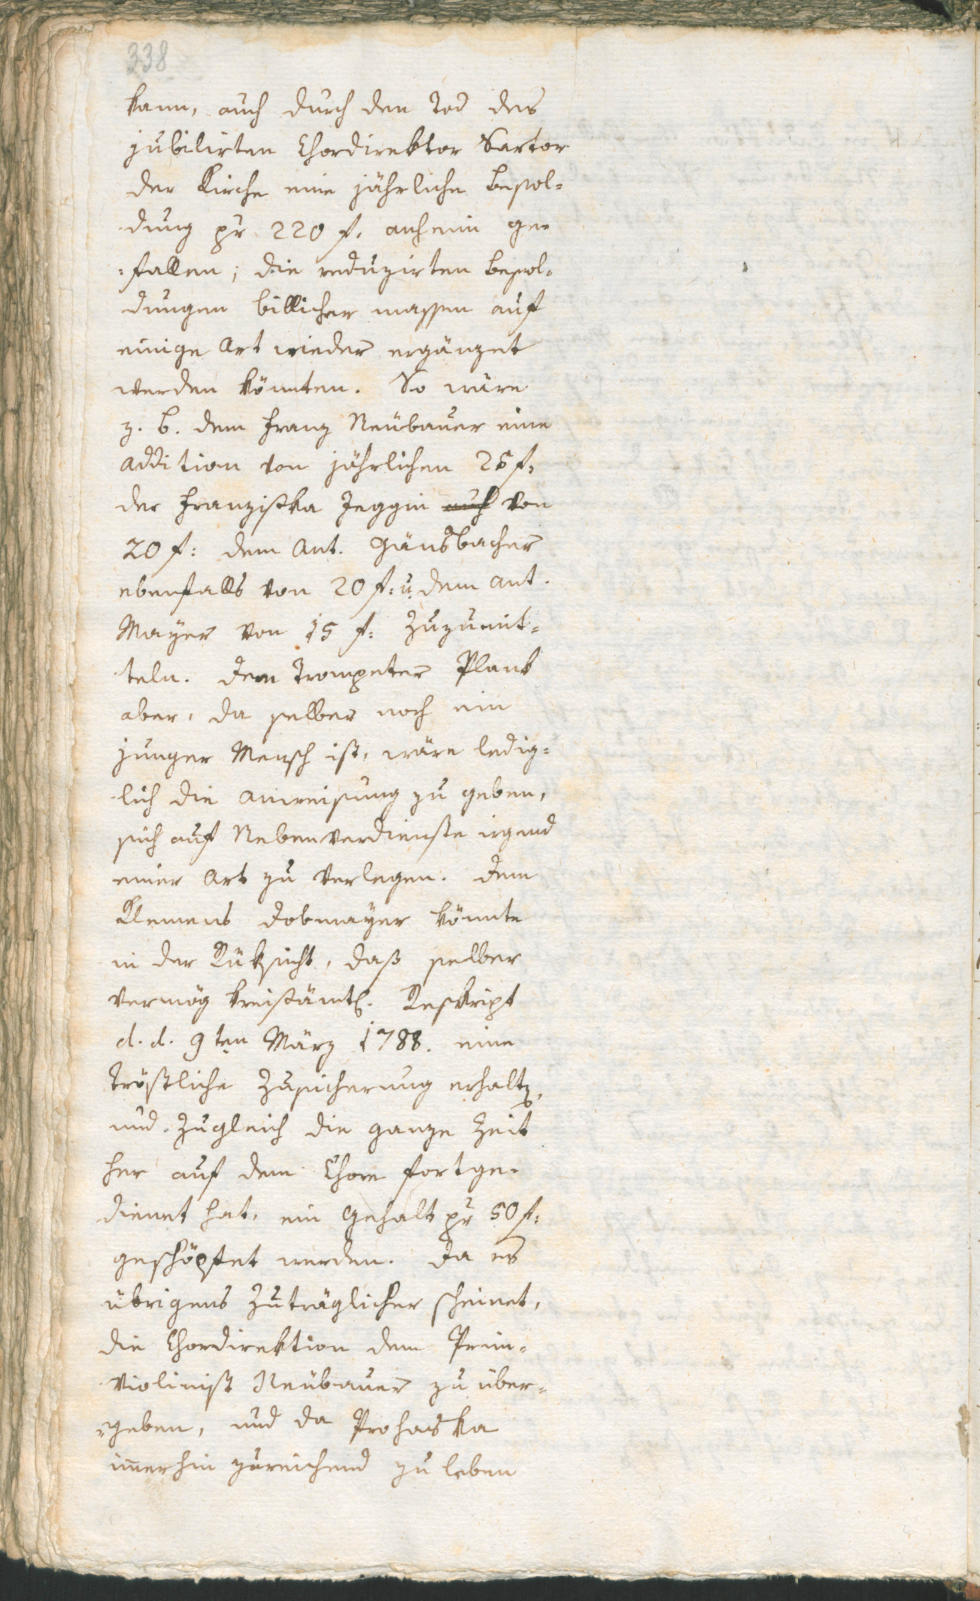 338
kann, auch durch den Tod des
jubilirten Chordirektor Sartor
der Kirche eine jährliche Besol-
dung pr 220 f. anheim ge-
-fallen; die reduzirten Besol-
dungen billicher massen auf
einige Art wieder ergänzet
werden könnten. So wäre
z. B. dem Franz Neübauer eine
addition von jährlichen 25 f:
der Franziska Jeggin auch von
20 f: dem Ant. Gänsbacher
ebenfalls von 20 f: u. dem Ant.
Mayer von 15 f: zuzumit-
teln. dem Trompeter Plank
aber, da selber noch ein
junger Mensch ist, wäre ledig-
lich die Anweisung zu geben,
sich auf Nebenverdienste irgend
einer Art zu verlegen. dem
Klemens Dobmayer könnte
in der Rüksicht, daß selber
vermög kreisämtl. Reskript
d. d. 9ten März 1788. eine
tröstliche Zusicherung erhaltn,
und zugleich die ganze Zeit
her auf dem Chore fortge-
dienet hat, ein Gehalt pr 50 f:
geschöpfet werden. Da es
übrigens zuträglicher scheinet,
die Chordirektion dem Prim-
violinist Neübauer zu über-
-geben, und da Prohaska
imerhin zureichend zu leben